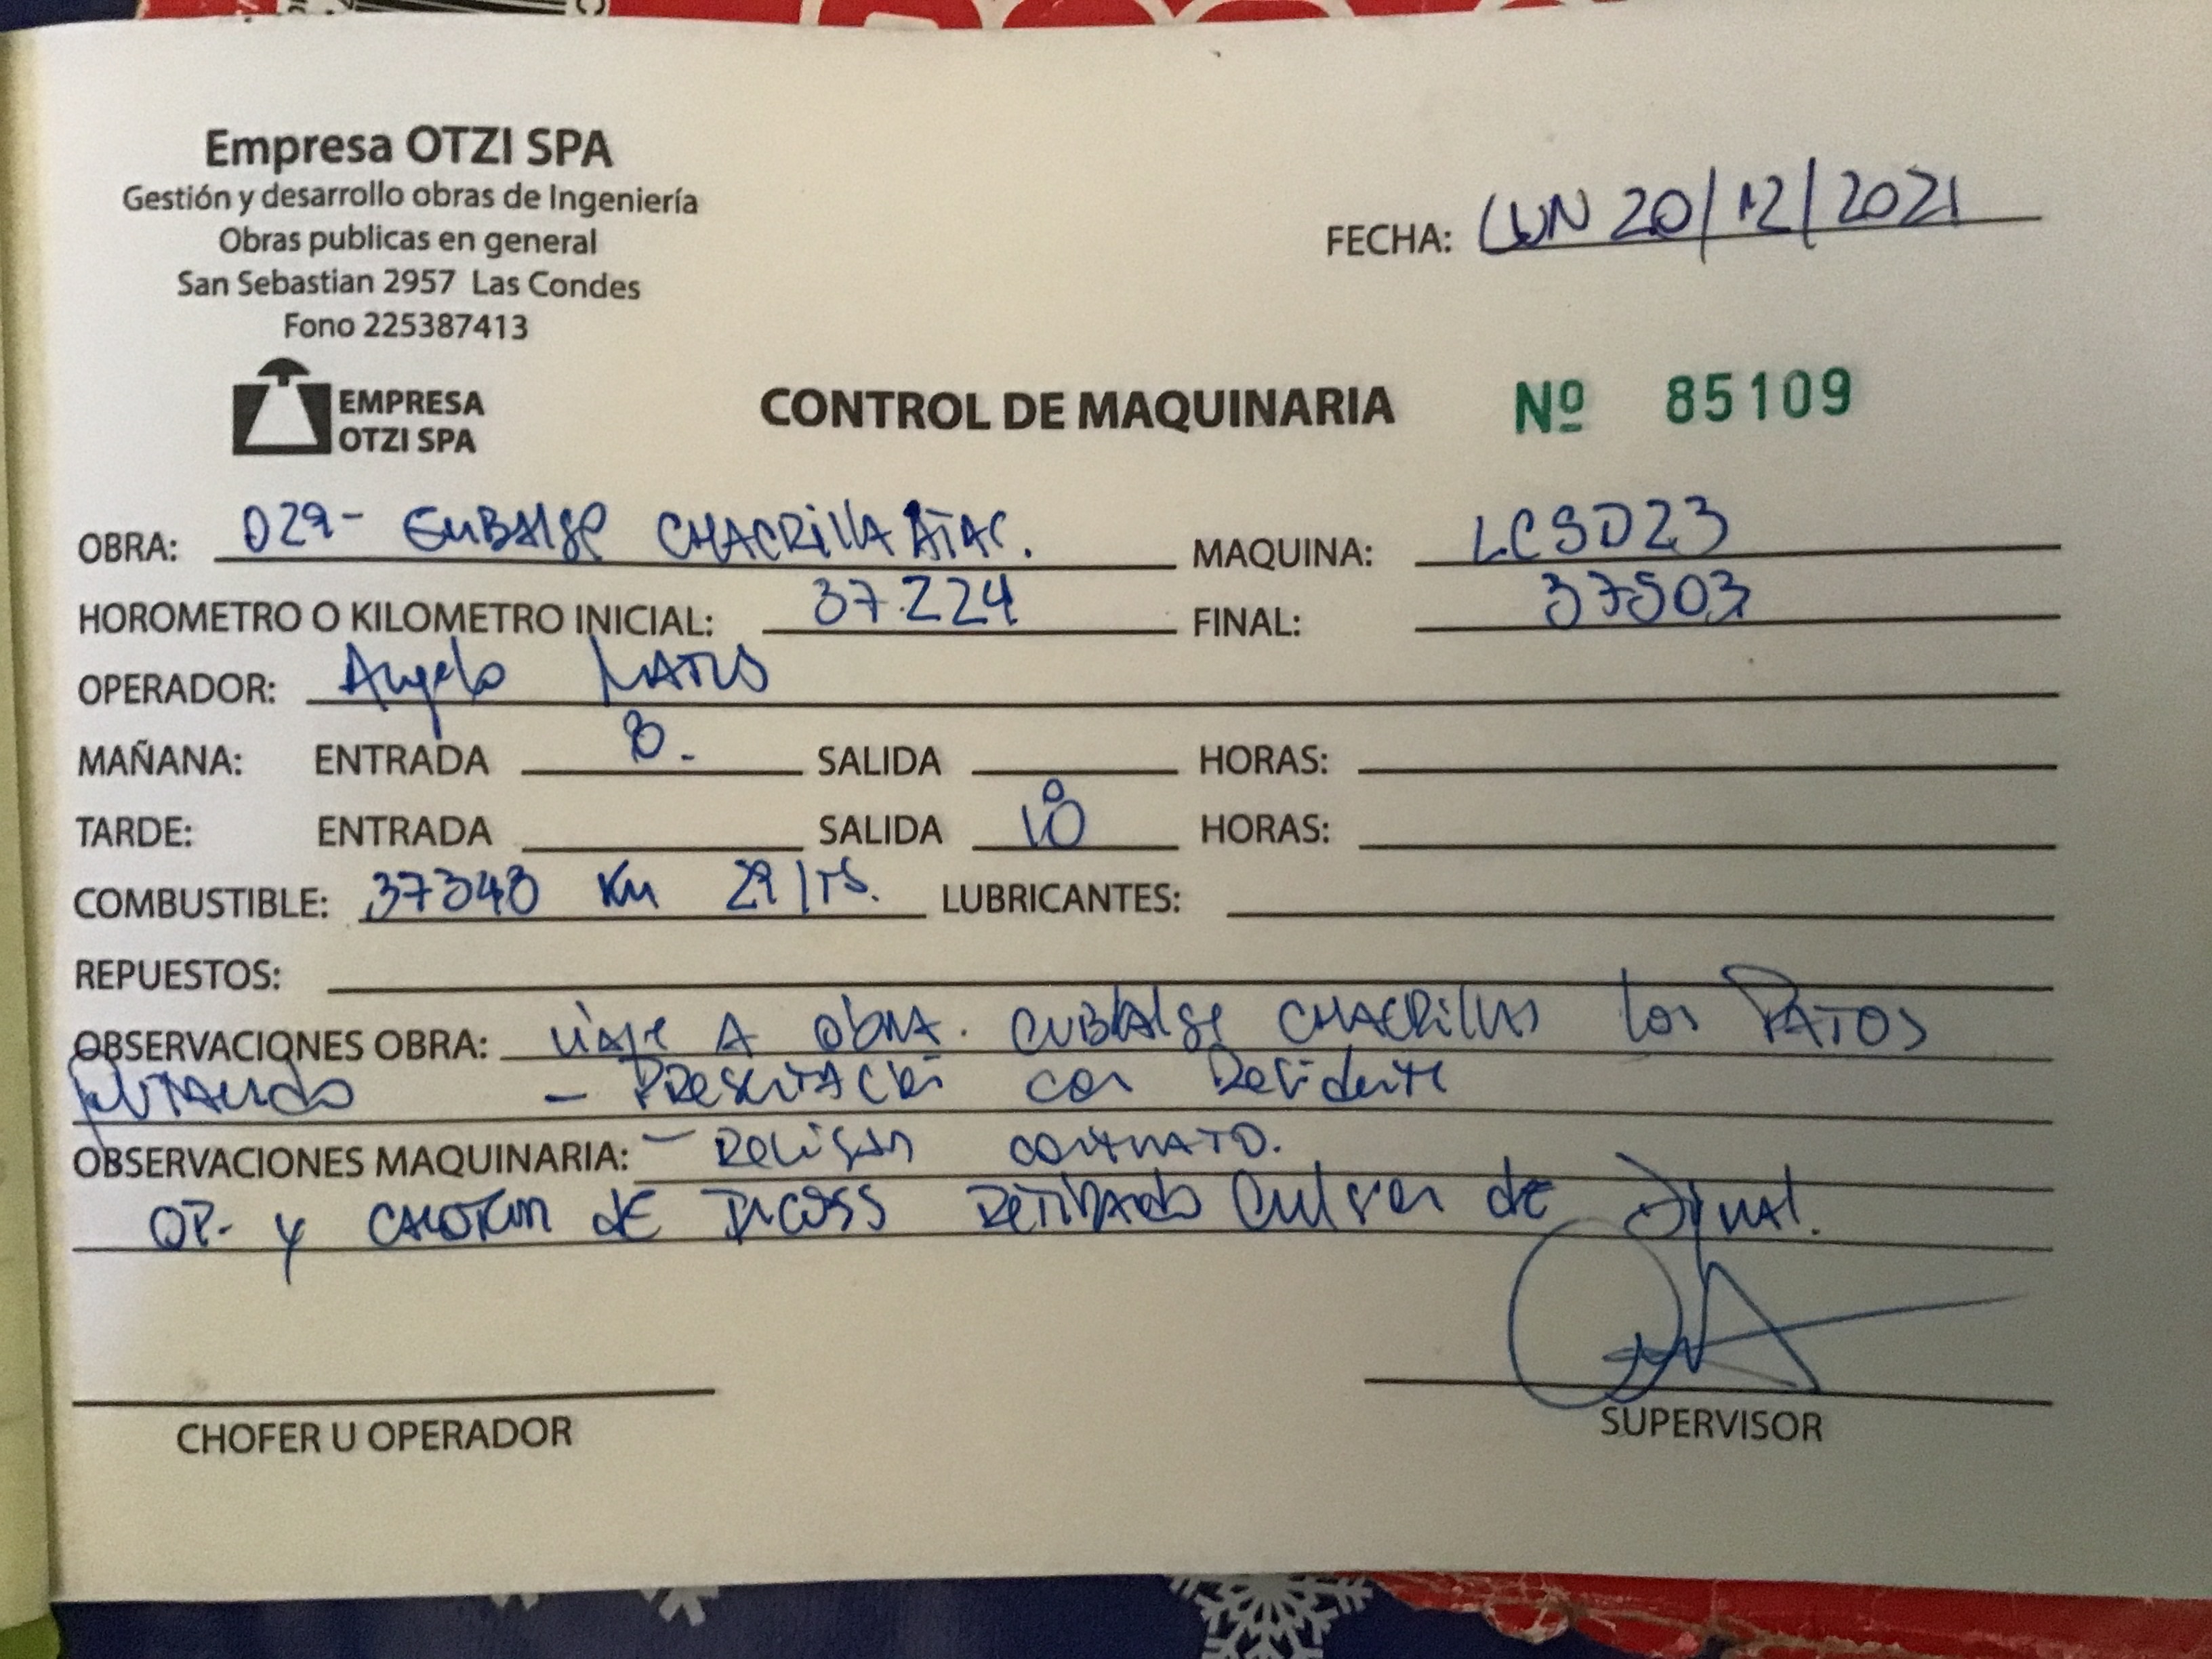 Empresa OTZI SPA
Gestión y desarrollo obras de Ingeniería
Obras publicas en general
San Sebastian 2957 Las Condes
Fono 225387413
FECHA: LUN 20/12/2021
EMPRESA
OTZI SPA
CONTROL DE MAQUINARIA Nº 85109
OBRA: 029- EMBALSE CHACRILLA MAQUINA: LCSD23
HOROMETRO O KILOMETRO INICIAL: 37.224 FINAL: 37503
OPERADOR: Angelo
MAÑANA: ENTRADA 8.- SALIDA HORAS:
TARDE: ENTRADA SALIDA 18 HORAS:
COMBUSTIBLE: 37348 KM 29 lTS. LUBRICANTES:
REPUESTOS:
OBSERVACIONES OBRA: Viaje A obra. EMBALSE CHACRILLAS los PATOS
PUTAENDO - Presentación con Residente
OBSERVACIONES MAQUINARIA: - Revisar contrato.
OP. y CAMION de
CHOFER U OPERADOR
SUPERVISOR